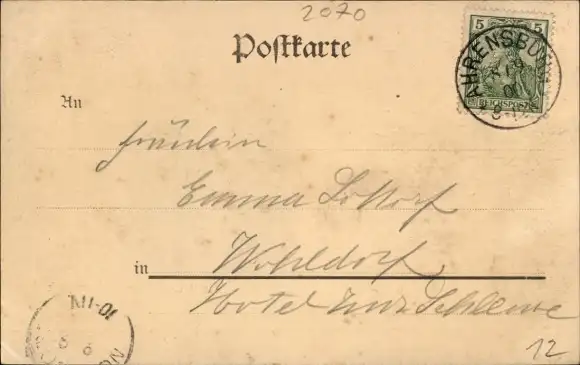 2070
Postkarte
5 5
AHRENSBURG
REICHSPOST
An
Fräulein
Emma Lottorf
in Wohldorf
Hotel zur Schleuse
12